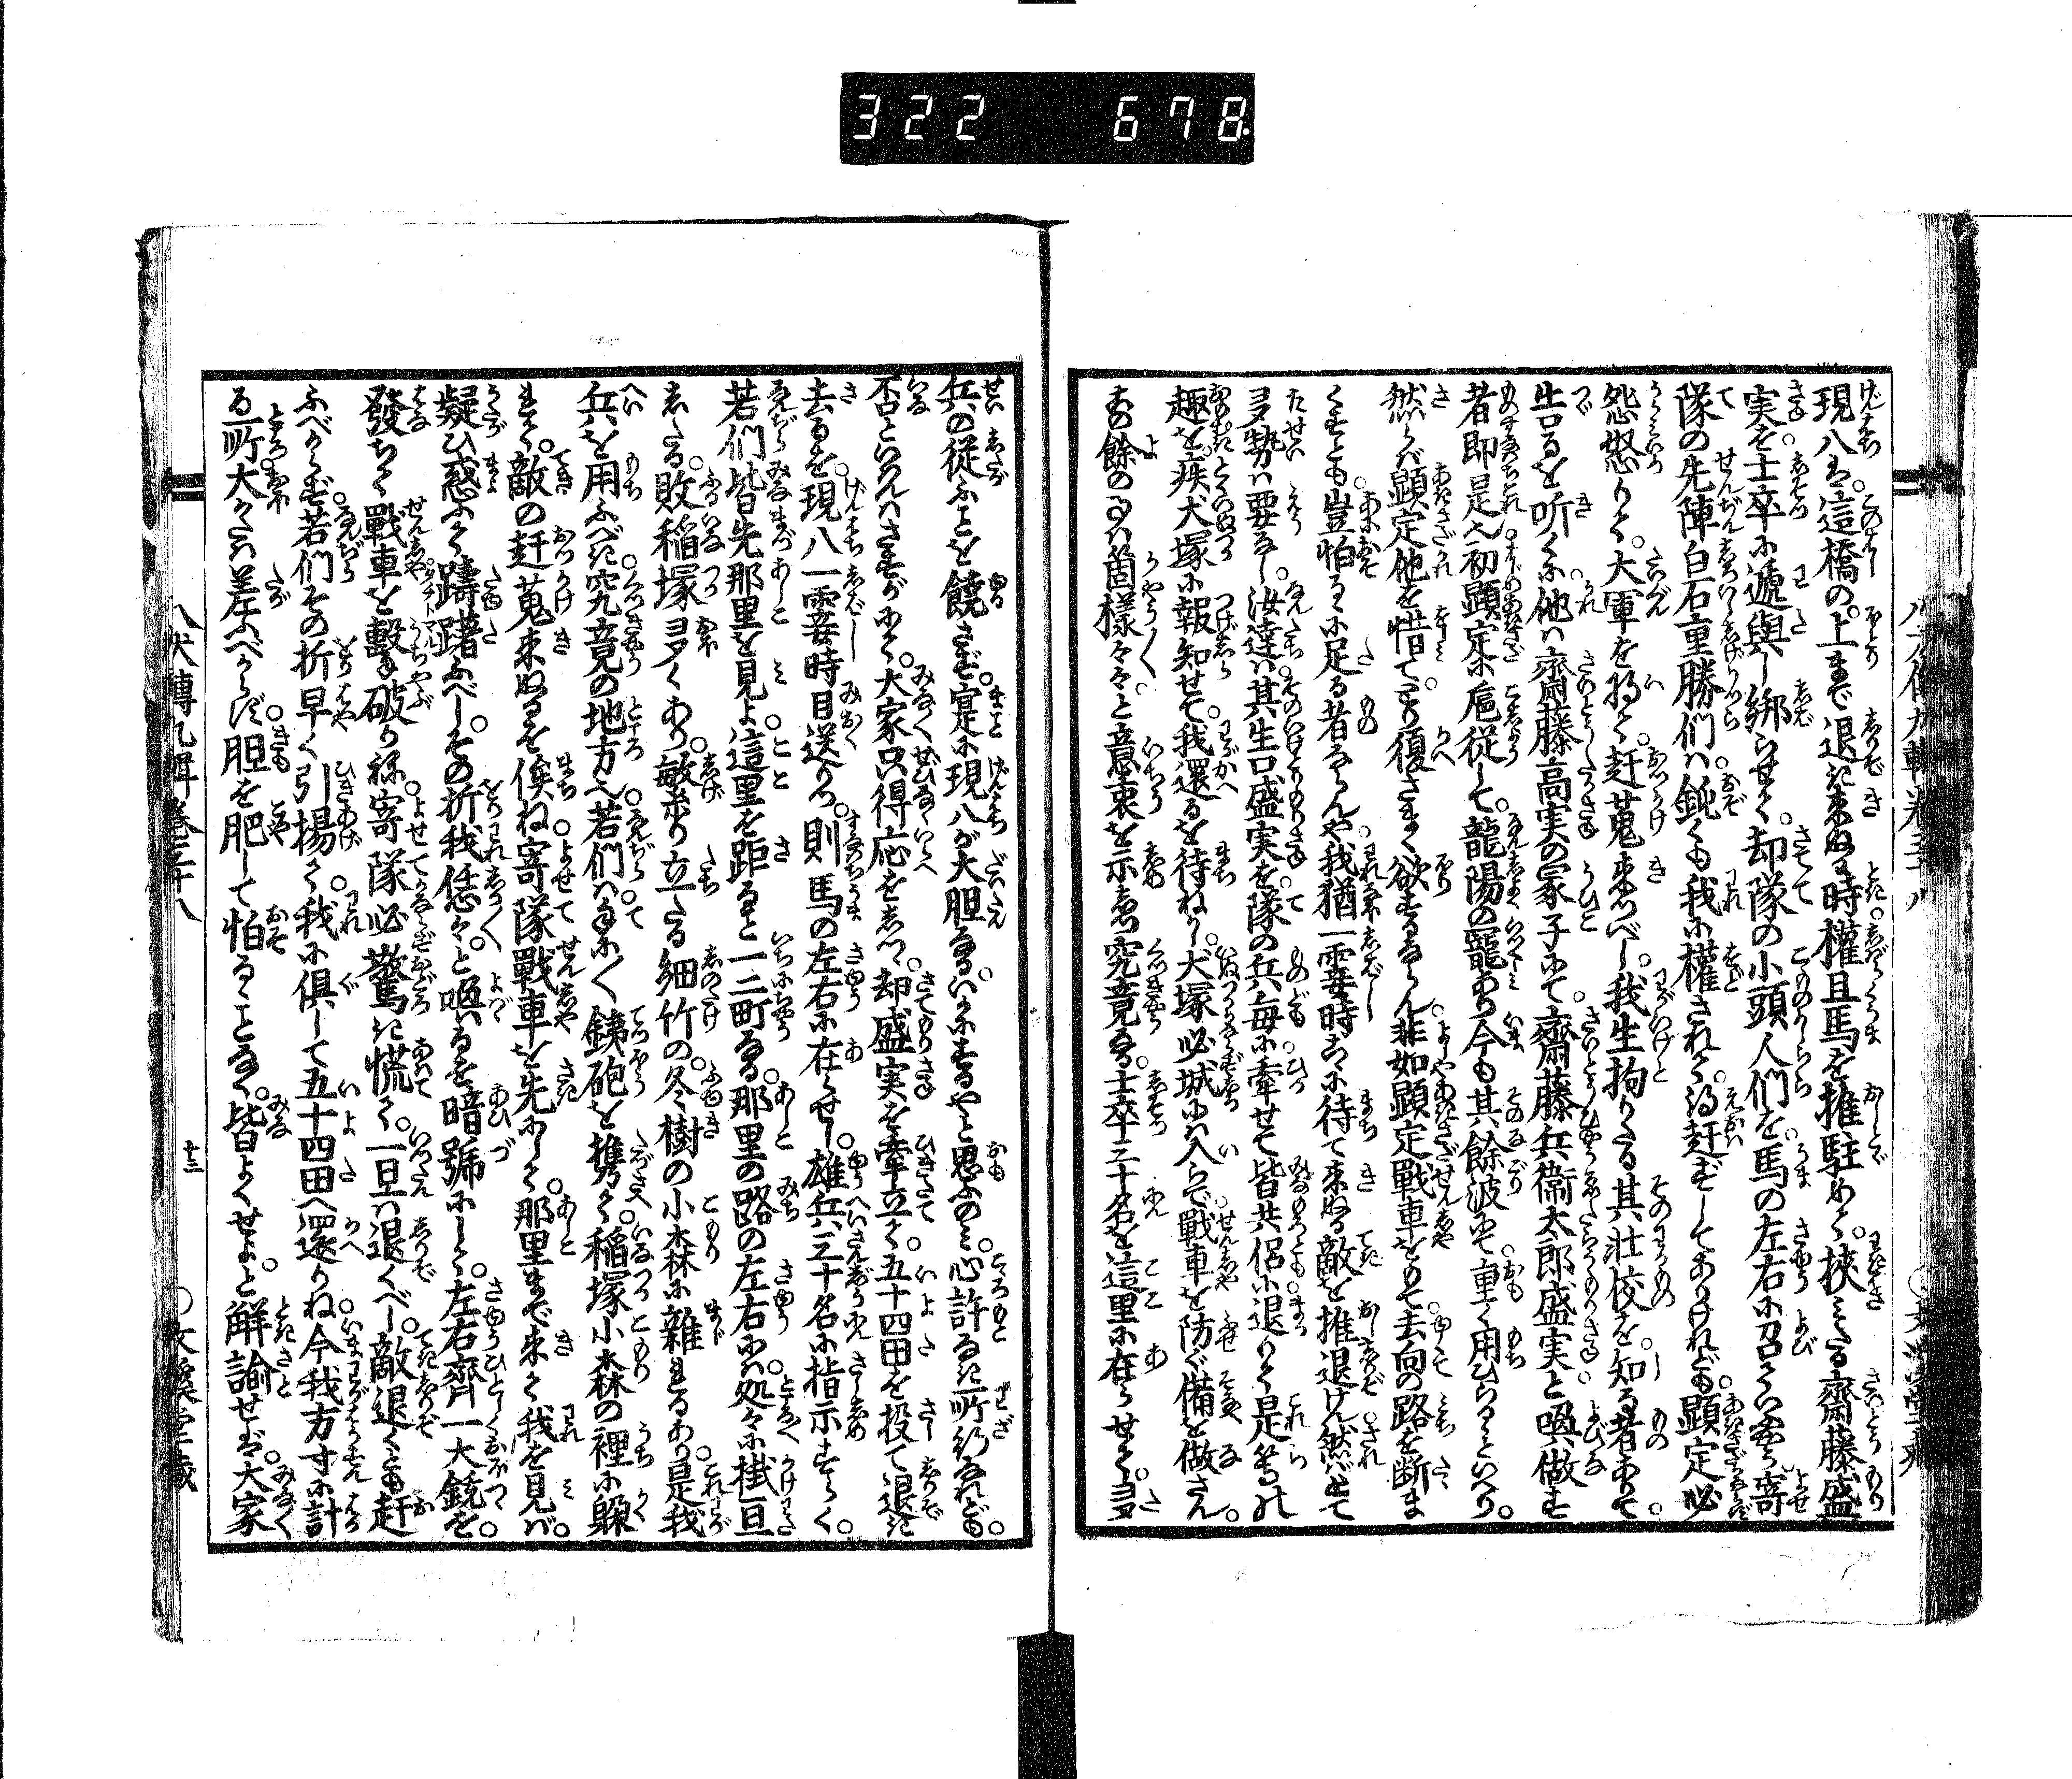 322 678
現八は。這橋の。上まで退き來ぬる時權且馬を推駐めて。挾みたる齋藤盛
実を。士卒に逓與し綁らせて。却隊の小頭人們を。馬の左右に召よせていふやう寄
隊の先陣白石重勝們は。鈍くも我に權されて。得赶ずしてありけれども。顕定必
怨怒りて。大軍を將て。赶蒐來つべし。我生拘りたる其壮佼を。知る者ありて。
告るを听くに。他は齋藤高実の冢子にて。齋藤兵衞太郎盛実と喚做す
者即是也。初顕定に扈従して。龍陽の寵あり今も其餘波にて。重く用ひらるゝといへり。
然らば顕定他を惜て。とり復さまく欲するならん。非如顕定戰車をもて。去向の路を断ま
くすとも。豈怕るゝに足る者ならんや。我猶一霎時こゝに待て。來ぬる敵を推退けん。然ばとて
多勢は要なし。汝達は。其生口盛実を。隊の兵毎に牽せて。皆共侶に退りて。是等の
趣を。疾犬塚に報知せて。我還るを待ねかし。犬塚必城には入らで。戰車を防ぐ備を做さん。
その餘の事は箇様々々。と意衷を示しつゝ。究竟なる。士卒三十名を。這里に在らせて。多
兵の従ふことを饒さず。寔に現八が大胆なる。いかにするやと思ふのみ。心許なき所行なれども。
否といはんはさすがにて。大家只得応をしつ。却盛実を牽立て。五十四田を投て退き
去るを。現八一霎時目送りつ。則馬の左右に在らせし。雄兵三十名に指示すらく。
若們皆先那里を見よ。這里を距ること一二町なる。那里の路の左右には。処々に掛亘
したる。敗稲塚多くあり。敏系り立たる細竹の。冬樹の小森に雜れるあり。是我
兵を用ふべき究竟の地方也。若們は。手に〱銕砲を携て。稲塚小森の裡に躱
れて。敵の赶蒐來ぬるを俟ね。寄隊戰車を先にして。那里まで來て我を見ば。
疑ひ惑ふて躊躇ふべし。その折我恁々。と喚るを暗號にして。左右齊一大銃を。
發ちて戰車を撃破りね。寄隊必驚き慌て。一旦は退くべし。敵退くとも赶
ふべからず。若們その折早く引揚て。我に倶して五十四田へ還りね。今我方寸に計
る所。大かたは差ふべからず。胆を肥して怕るゝことなく。皆よくせよ。と解諭せば。大家
八犬傳九輯卷三十八
十三